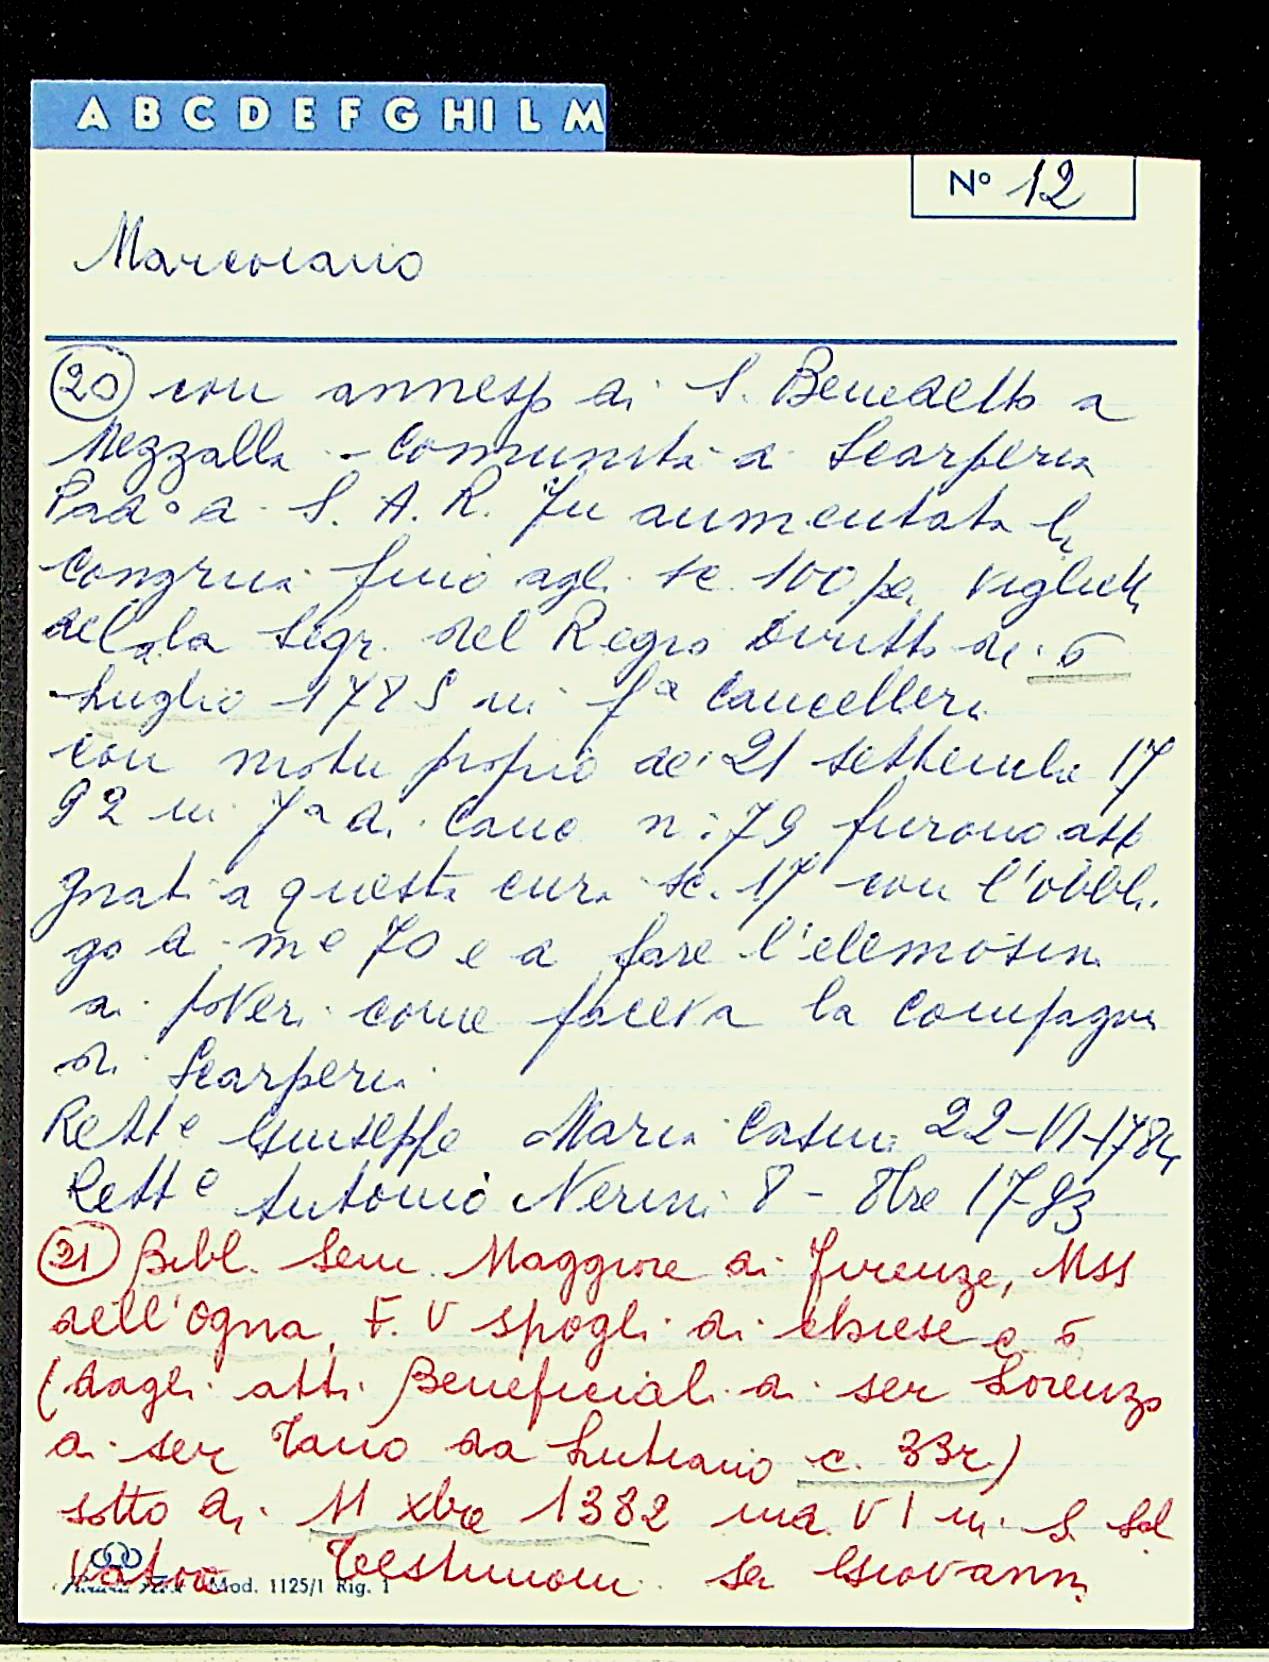 A B C D E F G H I L M
N° 12
Marcoiano
20 con annesso di S. Benedetto a
Mezzalla - Comunità di Scarperia
Pad° a S. A. R. Fu aumentata la
Congrua fino agli sc. 100 per vigliett
della Segr. del Regio Diritto de 6
Luglio 1785 in fa Cancelleri
con motu proprio de 21 settembre 17
92 in 7a di Canc n: 79 furono ass
gnati a questa cura sc. 17 con l'obbli
go di me 70 e a fare l'elemosin
ai poveri come faceva la Compagni
di Scarperia
Rette Giuseppe Maria Casini 22-VI-1784
Rette Antonio Nerini 8 - 8bre 1793
21 Bibl. Sem. Maggiore di Firenze, Mss
dell'Ogna, F. V spogli di chiese c. 6
(dagli atti Beneficiali di ser Lorenzo
di ser Tano da Lutiano c. 33r)
sotto di 11 xbre 1382 ind. VI in S. Sal
vatore Testimoni ser Giovanni
Mod. 1125/1 Rig. 1